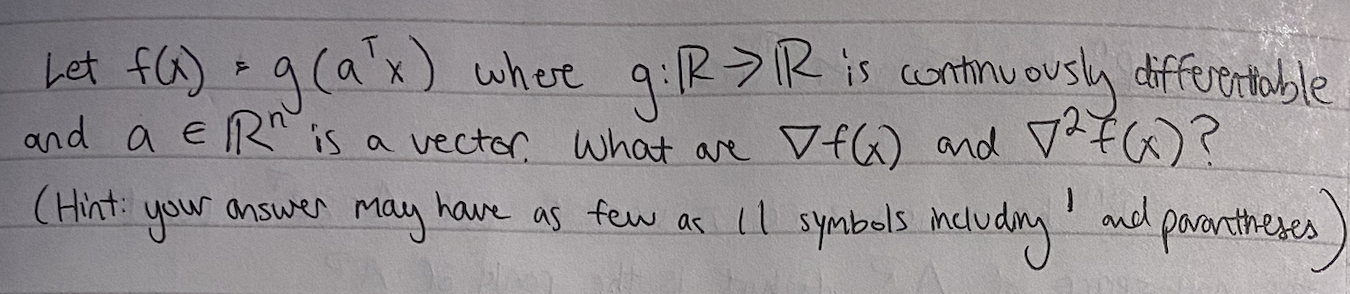 Let f(x) = g(aᵀx) where g: ℝ → ℝ is continuously differentiable
and a ∈ ℝⁿ is a vector. What are ∇f(x) and ∇²f(x)?
(Hint: your answer may have as few as 11 symbols including ' and parantheses)